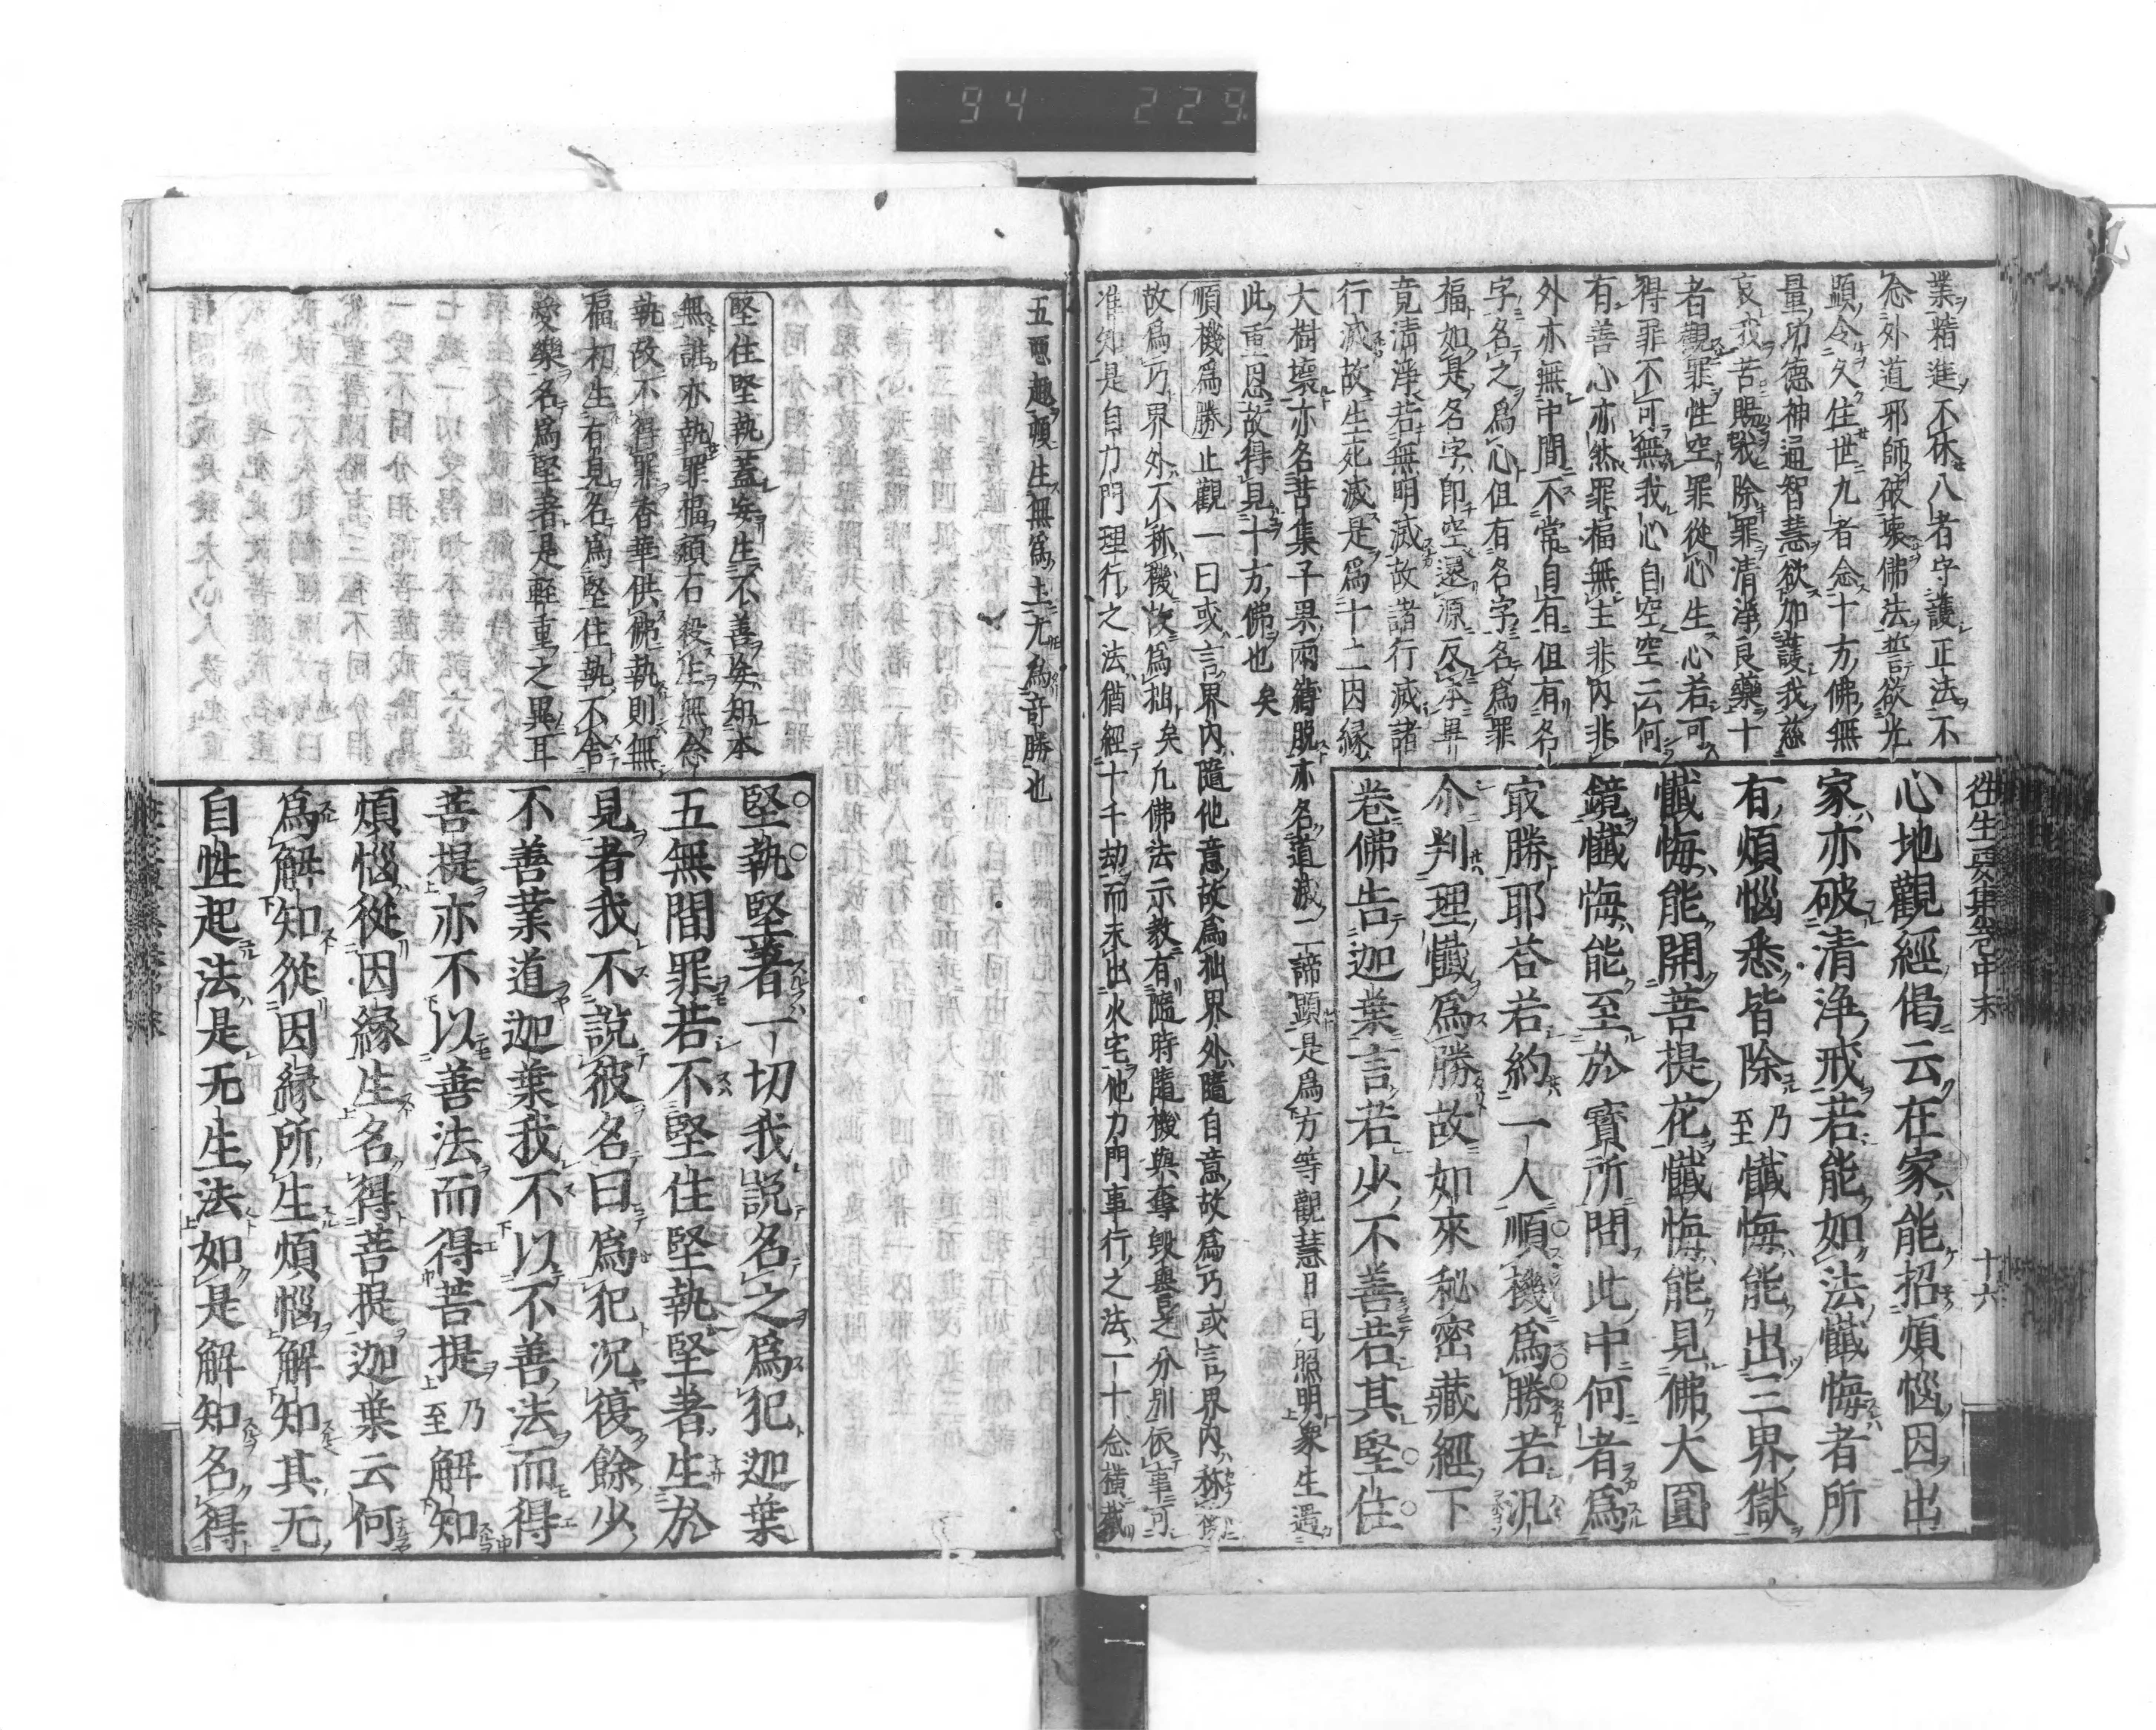 94 229
業精進不休八者守護正法不
念外道邪師破壞佛法誓欲光
顯令久住世九者念十方佛無
量功德神通智慧欲加護我慈
哀我苦賜我除罪清淨良藥十
者觀罪性空罪從心生心若可
得罪不可無我心自空空云何
有善心亦然罪福無主非內非
外亦無中間不常自有但有名
字名之爲心但有名字名爲罪
福如是名字即空還源反本畢
竟清淨若無明滅故諸行滅諸
行滅故生死滅是爲十二因緣
大樹壞亦名苦集子果兩縛脫亦名道滅二諦顯是爲方等觀慧日月照明衆生遇
此重恩故得見十方佛也矣
順機爲勝止觀一曰或言界內隨他意故爲拙界外隨自意故爲巧或言界內稱機
故爲巧界外不稱機故爲拙矣凡佛法示教有隨時隨機與奪毀譽之分別依事可
准知是自力門理行之法猶經十千劫而未出火宅他力門事行之法一十念橫截
往生要集卷中末 十六
心地觀經偈云在家能招煩惱因出
家亦破清淨戒若能如法懺悔者所
有煩惱悉皆除乃至懺悔能出三界獄
懺悔能開菩提花懺悔能見佛大圓
鏡懺悔能至於寶所問此中何者爲
最勝耶荅若約一人順機爲勝若汎
尒判理懺爲勝故如來秘密藏經下
卷佛告迦葉言若少不善若其堅住
五惡趣頓生無爲土尤爲奇勝也
堅住堅執蓋妄生不善妄知本
無誰亦執罪福頑石殺生無念
執故不得罪香華供佛執則無
福初生有見名爲堅住執不舍
愛樂名爲堅著是輕重之異耳
堅執堅著一切我說名之爲犯迦葉
五無間罪若不堅住堅執堅著生於
見者我不說彼名曰爲犯況復餘少
不善業道迦葉我不以不善法而得
菩提亦不以善法而得菩提乃至解知
煩惱從因緣生名得菩提迦葉云何
爲解知從因緣所生煩惱解知其无
自性起法是无生法如是解知名得